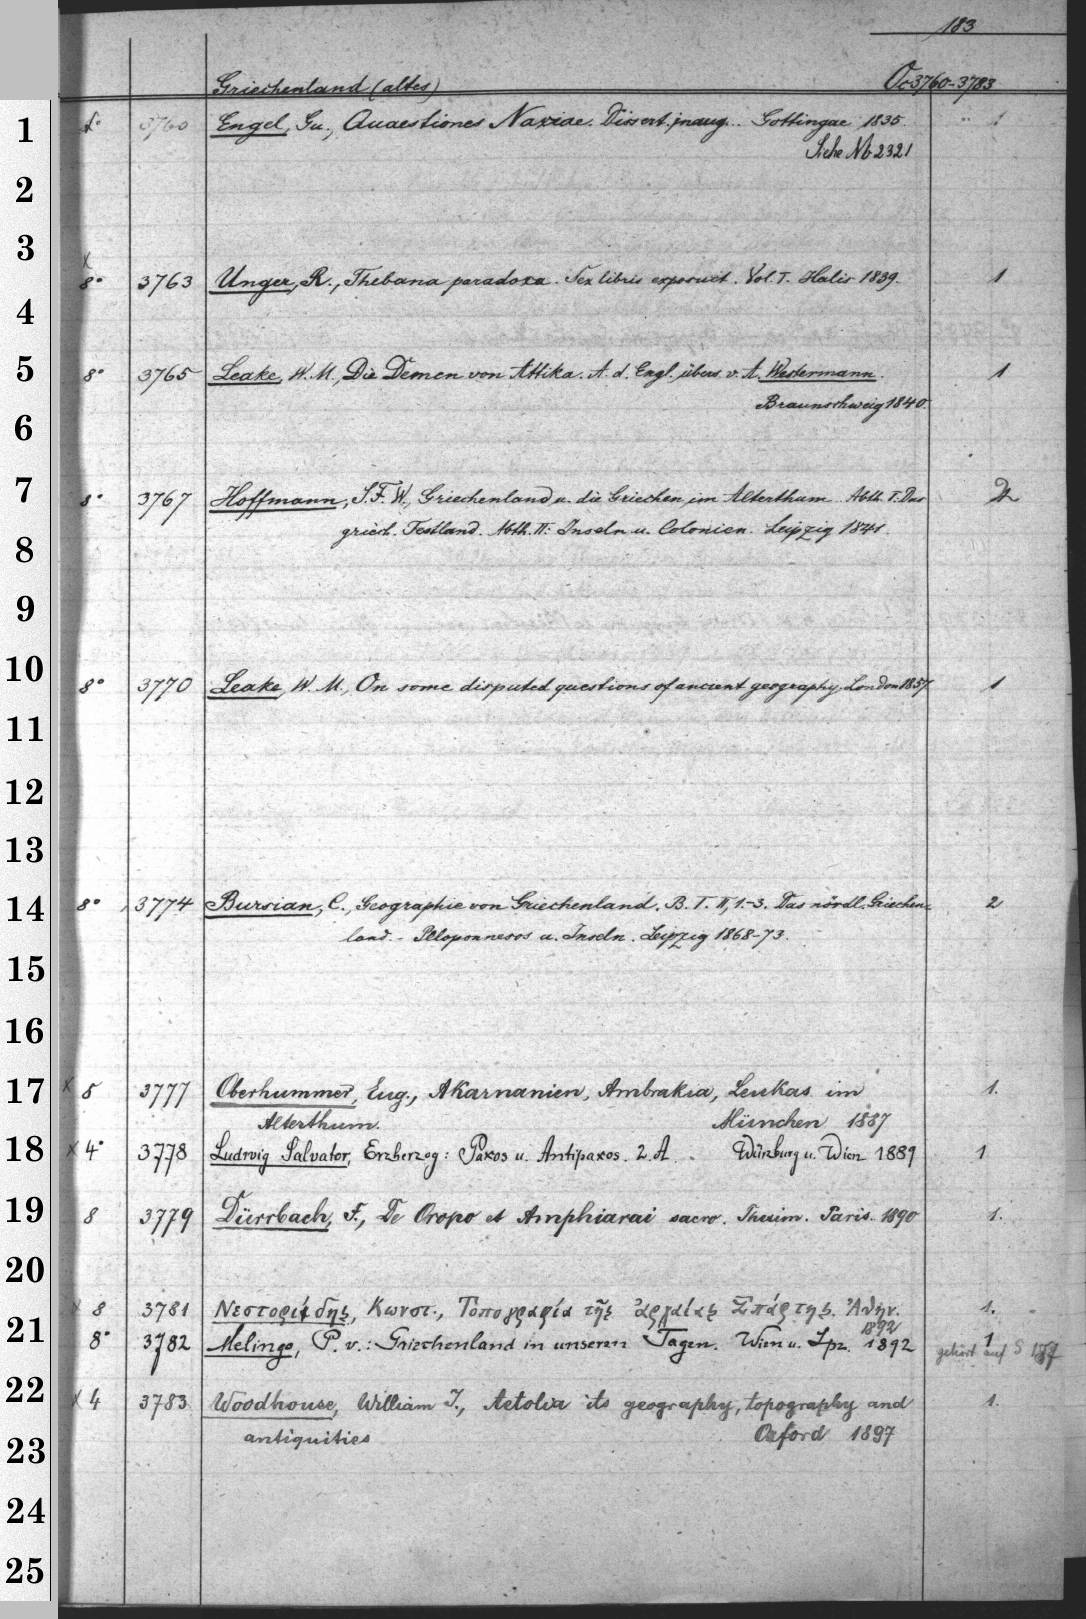 183
Griechenland (altes) Oc 3760-3783
1 8° 3760 Engel, Gu., Quaestiones Naxiae. Dissert. inaug. Gottingae 1835. 1
Siehe Nb 2321
2
3 x
8° 3763 Unger, R., Thebana paradoxa. Sex libris exposuit. Vol. I. Halis 1839. 1
4
5 8° 3765 Leake, W. M., Die Demen von Attika. A. d. Engl. übers. v. A. Westermann. 1
Braunschweig 1840.
6
7 8° 3767 Hoffmann, S. F. W., Griechenland u. die Griechen im Alterthum. Abth. I. Das 2
8 griech. Festland. Abth. II: Inseln u. Colonien. Leipzig 1841.
9
10 8° 3770 Leake, W. M., On some disputed questions of ancient geography. London 1857. 1
11
12
13
14 8° 3774 Bursian, C., Geographie von Griechenland. B. I. II, 1.-3. Das nördl. Griechen- 2
land. - Peloponnesos u. Inseln. Leipzig 1868-73.
15
16
17 x 8 3777 Oberhummer, Eug., Akarnanien, Ambrakia, Leukas im 1.
Alterthum. München 1887
18 x 4° 3778 Ludwig Salvator, Erzherzog: Paxos u. Antipaxos. 2. A. Würzburg u. Wien 1889 1
19 8 3779 Dürrbach, F., De Oropo et Amphiarai sacro. Thesim. Paris. 1890 1.
20
x 8 3781 Νεστορίδης, Κωνστ., Τοπογραφία τῆς ἀρχαίας Σπάρτης. Ἀθην. 1.
1892
21 8° 3782 Melingo, P. v.: Griechenland in unseren Tagen. Wien u. Lpz. 1892 1
gehört auf S 187
22 x 4 3783 Woodhouse, William J., Aetolia its geography, topography and 1.
23 antiquities Oxford 1897
24
25